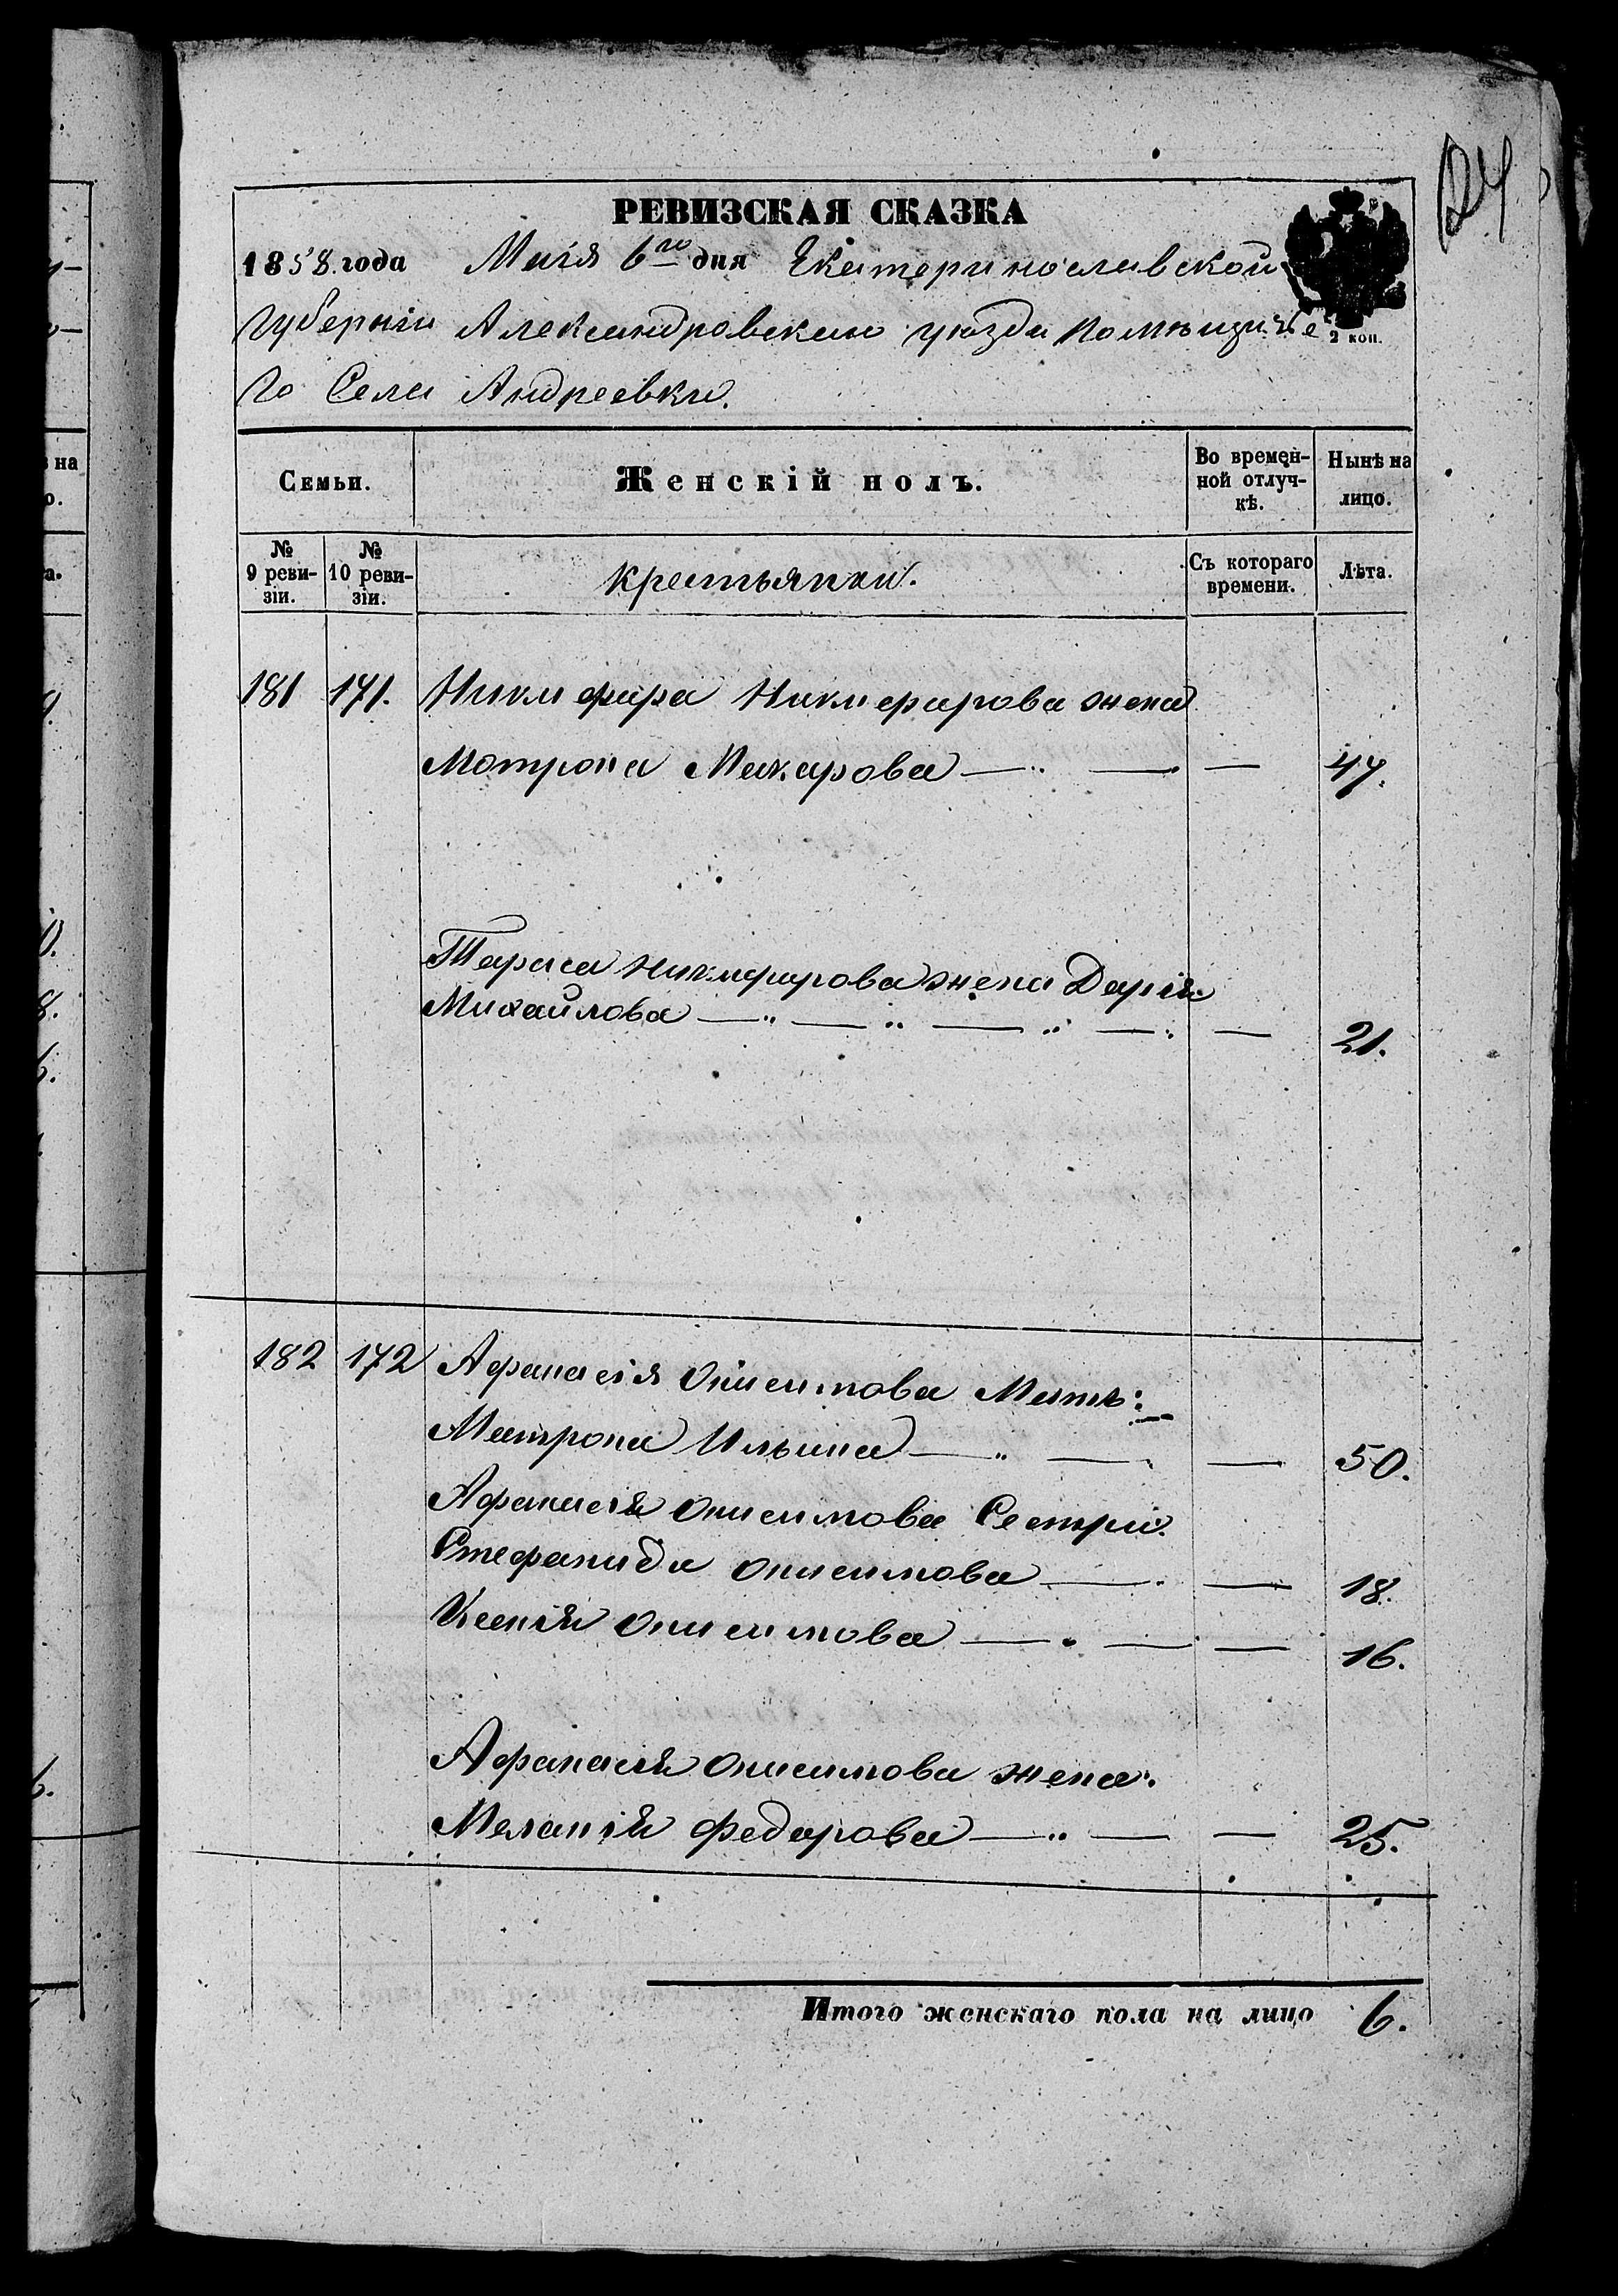 РЕВИЗСКАЯ СКАЗКА
1858. года Маія 6го дня Екатеринославской
Губерніи Александровскаго уѣзда помѣщичье
2 коп.
го Села Андреевки.
Семьи.
Женскій полъ.
Во времен-
ной отлуч-
кѣ.
Нынѣ на
лицо.
№
9 реви-
зіи.
№
10 реви-
зіи.
крестьянки.
Съ котораго
времени.
Лѣта.
181 171. Никифора Никифорова жена
Мотрона Макарова — 47.
Тараса Никифорова жена Дарія
Михайлова — 21.
182 172 Афанасія Онисимова Мать:
Матрона Ильина — 50.
Афанасія Онисимова Сестры.
Стефанида Онисимова — 18.
Ксенія Онисимова — 16.
Афанасія Онисимова жена.
Меланія Федорова — 25.
Итого женскаго пола на лицо 6.